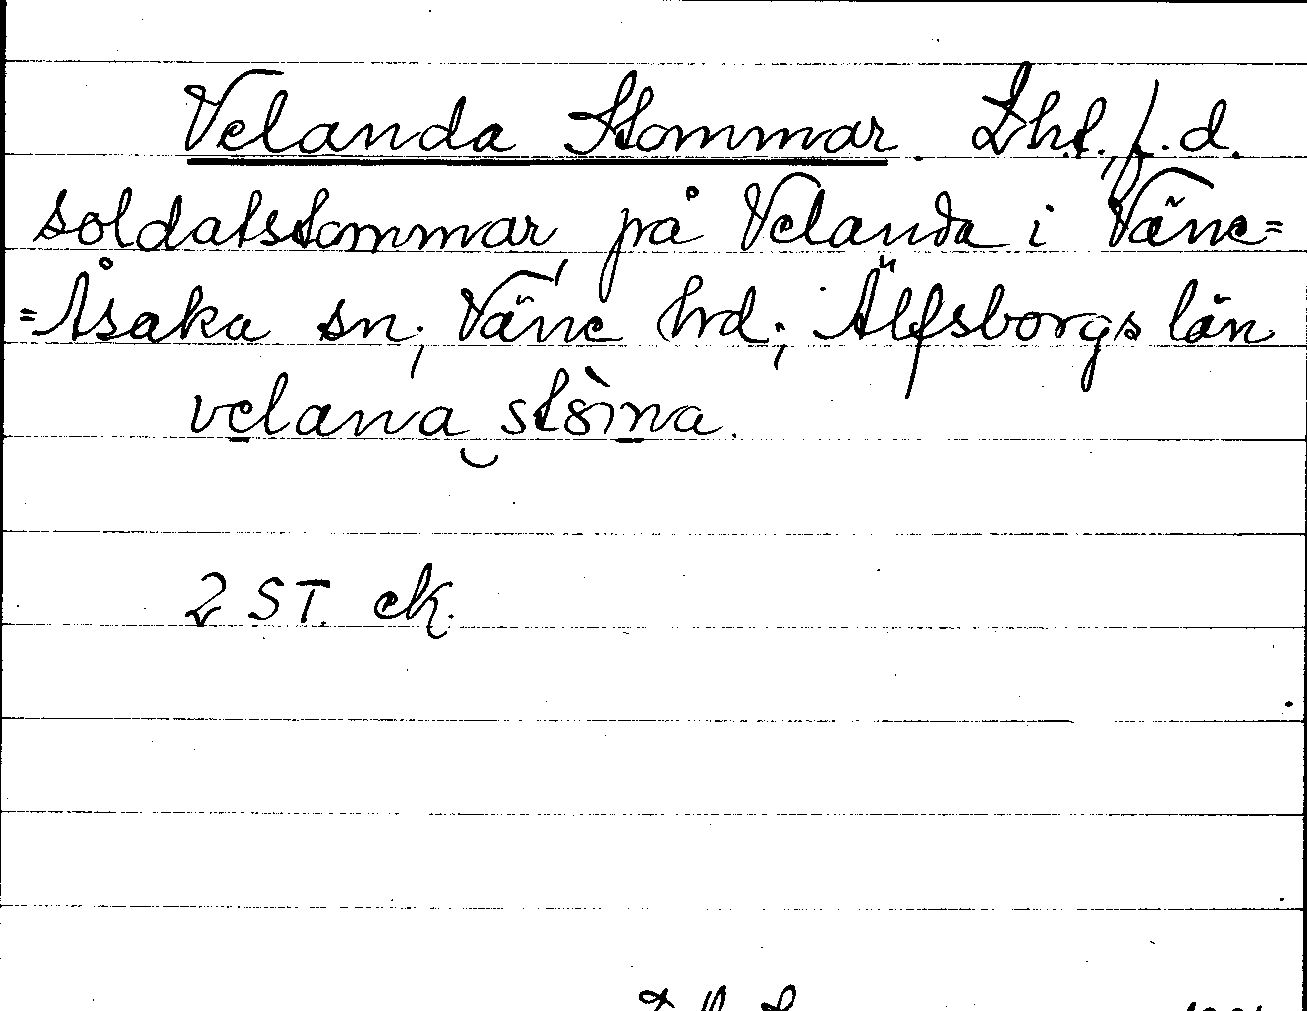 Velanda Stommar. Lht., f.d.
soldatstommar, på Velanda i Väne=
=Åsaka sn, Väne hrd; Älfsborgs län
velana stòma.
2 ST. ek.